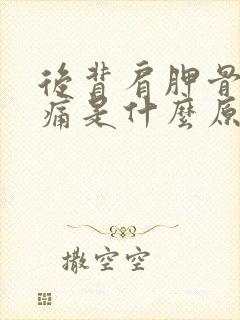 後背肩胛骨
痛是什麼原
撒空空